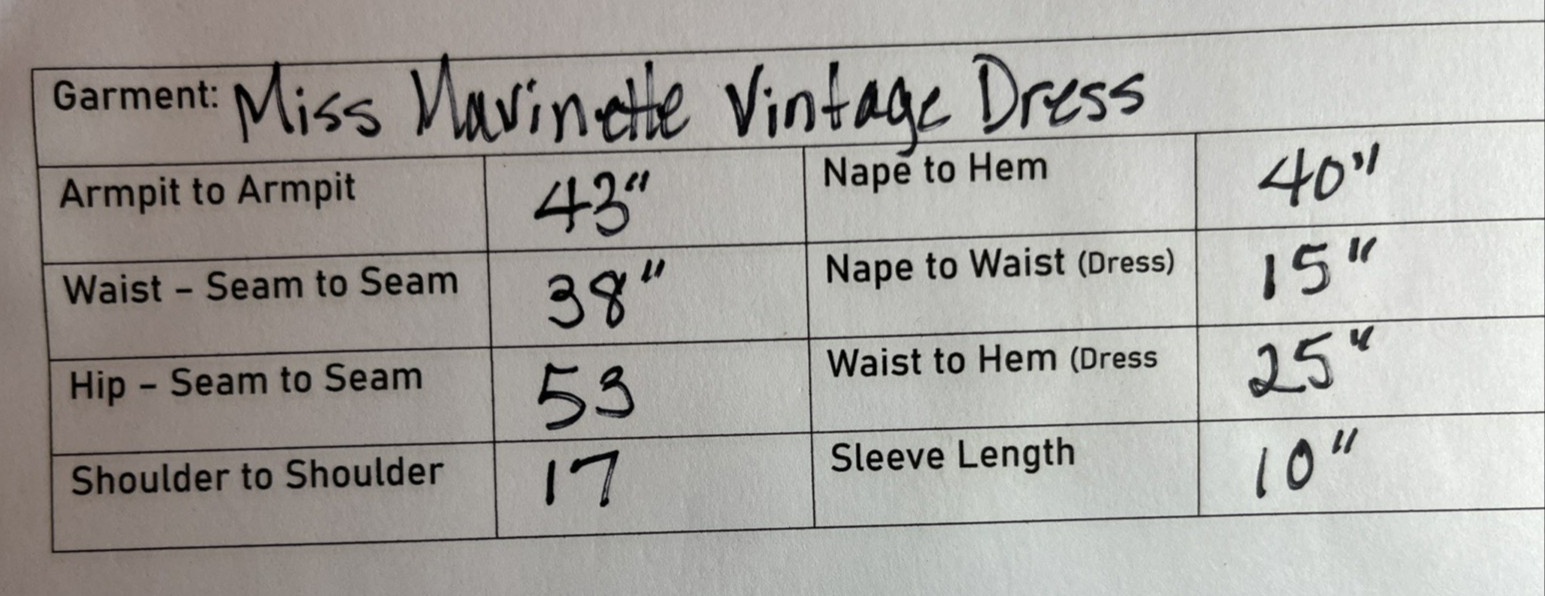 Garment: Miss Mavinette Vintage Dress
Armpit to Armpit 43" Nape to Hem 40"
Waist – Seam to Seam 38" Nape to Waist (Dress) 15"
Hip – Seam to Seam 53 Waist to Hem (Dress 25"
Shoulder to Shoulder 17 Sleeve Length 10"